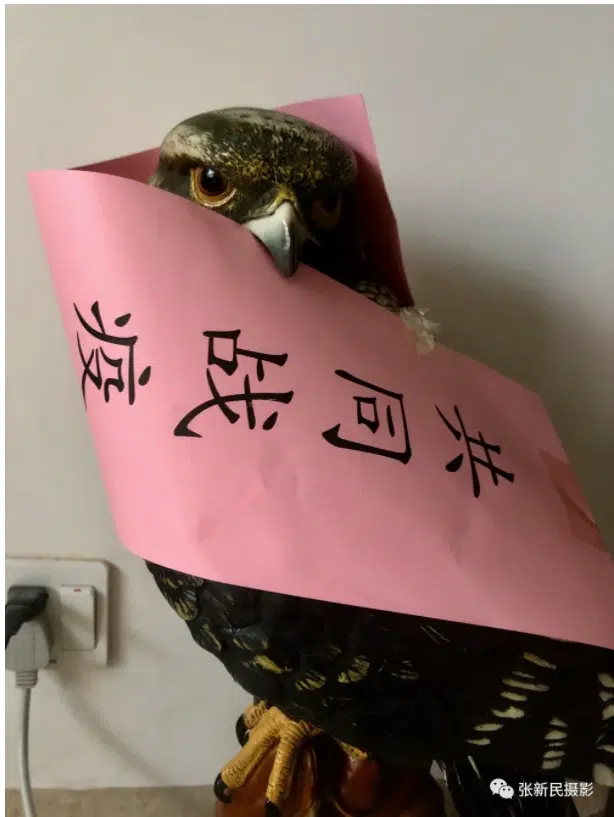 共同战疫
张新民摄影